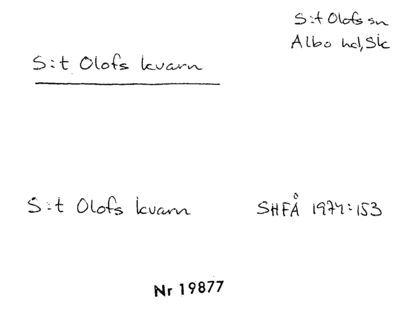 S:t Olofs sn
Albo hd, Sk
S:t Olofs kvarn
S:t Olofs kvarn SHFÅ 1974:153
Nr 19877